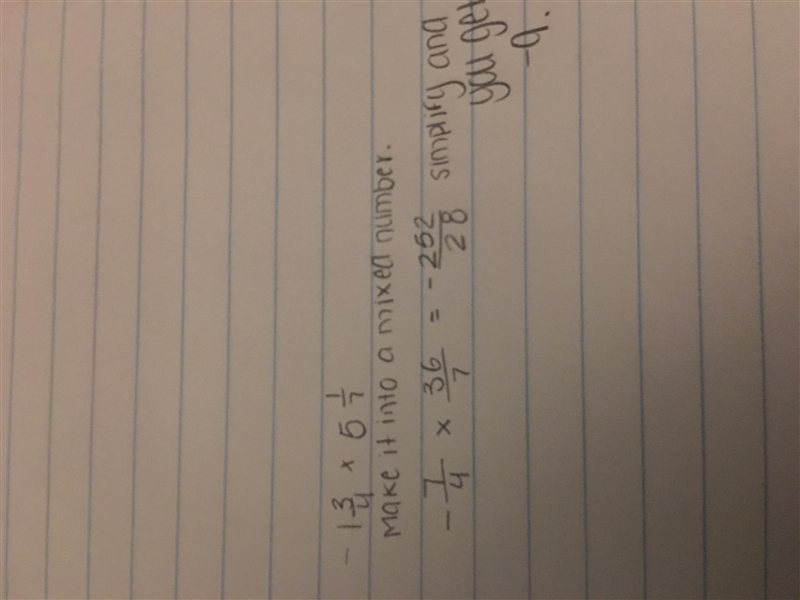 - 1 3/4 x 5 1/7
Make it into a mixed number.
- 7/4 x 36/7 = - 252/28 simplify and
you get
-9.